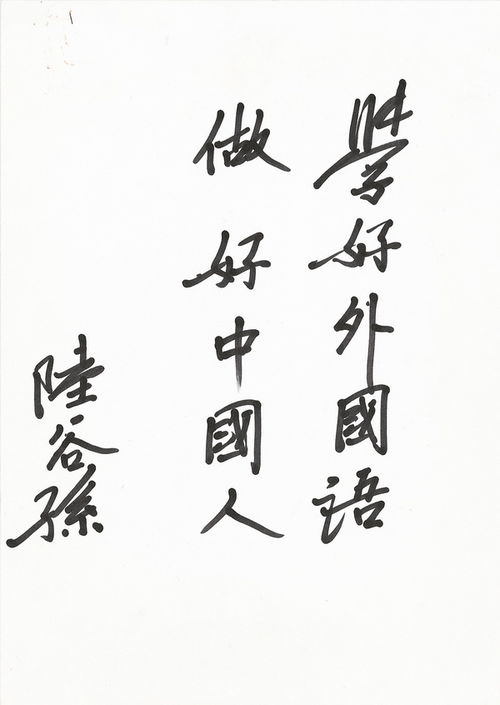 學好外國语
做好中國人
陸谷孫